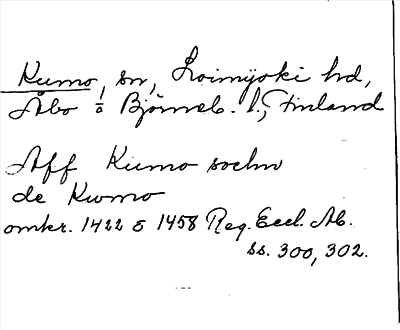 Kumo, sn, Loimijoki hd,
Åbo o Björneb. l., Finland
Aff Kumo sochn
de Kwmo
omkr. 1422 o 1458 Reg. Eccl. Ab.
ss. 300, 302.